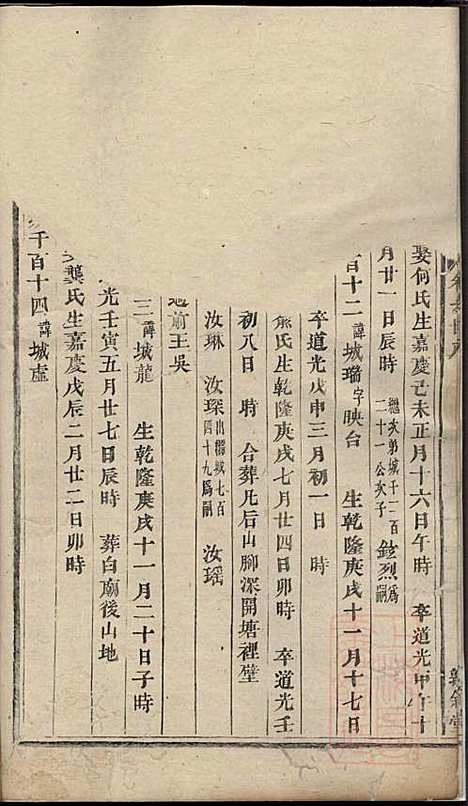 娶何氏生嘉慶己未正月十六日午時　卒道光甲午十
月廿一日辰時　繼次弟城千二百二十一公次子　鉸烈爲嗣
百十二　諱城璠字映台　生乾隆庚戌十一月十七日
卒道光戊申三月初一日　時
熊氏生乾隆庚戌七月廿四日卯時　卒道光壬
初八日　時　合葬凡后山腳深開塘裡壁
汝琳　汝琛出繼城七百四十九爲嗣　汝瑤
前王吳
三　諱城龍　生乾隆庚戌十一月二十日子時
光壬寅五月廿七日辰時　葬白廟後山地
龔氏生嘉慶戊辰二月廿二日卯時
千百十四　諱城虛